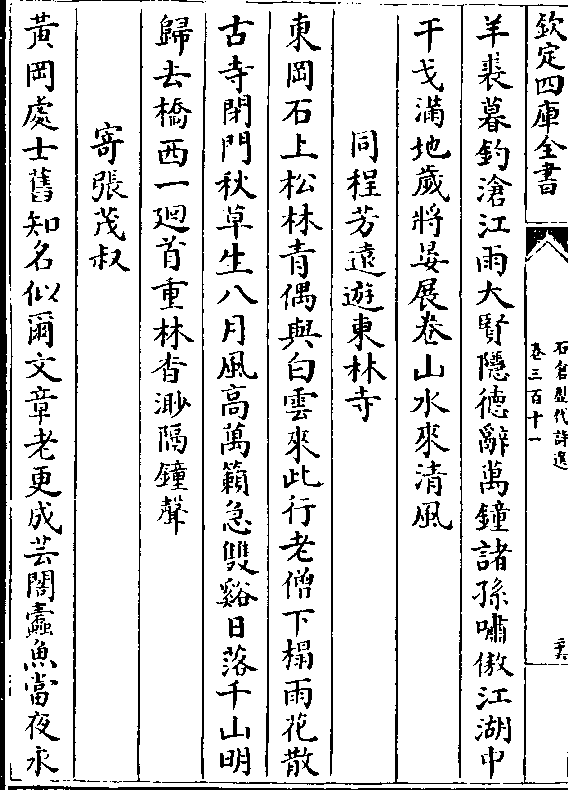 欽定四庫全書
石倉歷代詩選
卷三百十一
羊裘暮釣滄江雨大賢隱德辭萬鐘諸孫嘯傲江湖中
干戈滿地歲將晏展卷山水來清風
同程芳遠遊東林寺
東岡石上松林青偶與白雲來此行老僧下榻雨花散
古寺閉門秋草生八月風高萬籟急雙谿日落千山明
歸去橋西一迴首重林杳渺隔鐘聲
寄張茂叔
黃岡處士舊知名似爾文章老更成芸閣蠹魚當夜永